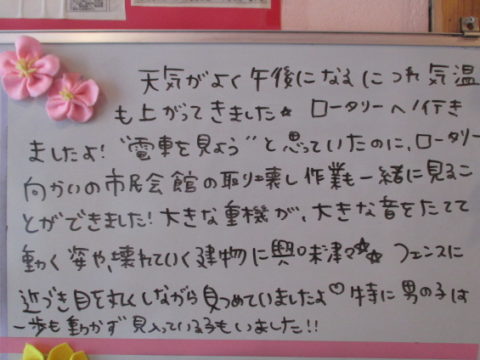 天気がよく午後になるにつれ気温
も上がってきました☆ ロータリーへ行き
ましたよ!"電車を見よう"と思っていたのに、ロータリー
向かいの市民会館の取り壊し作業も一緒に見るこ
とができました!大きな重機が、大きな音をたてて
動く姿や、壊れていく建物に興味津々☆☆ フェンスに
近づき目を丸くしながら見つめていましたよ♡特に男の子は
一歩も動かず見入っている子もいました!!